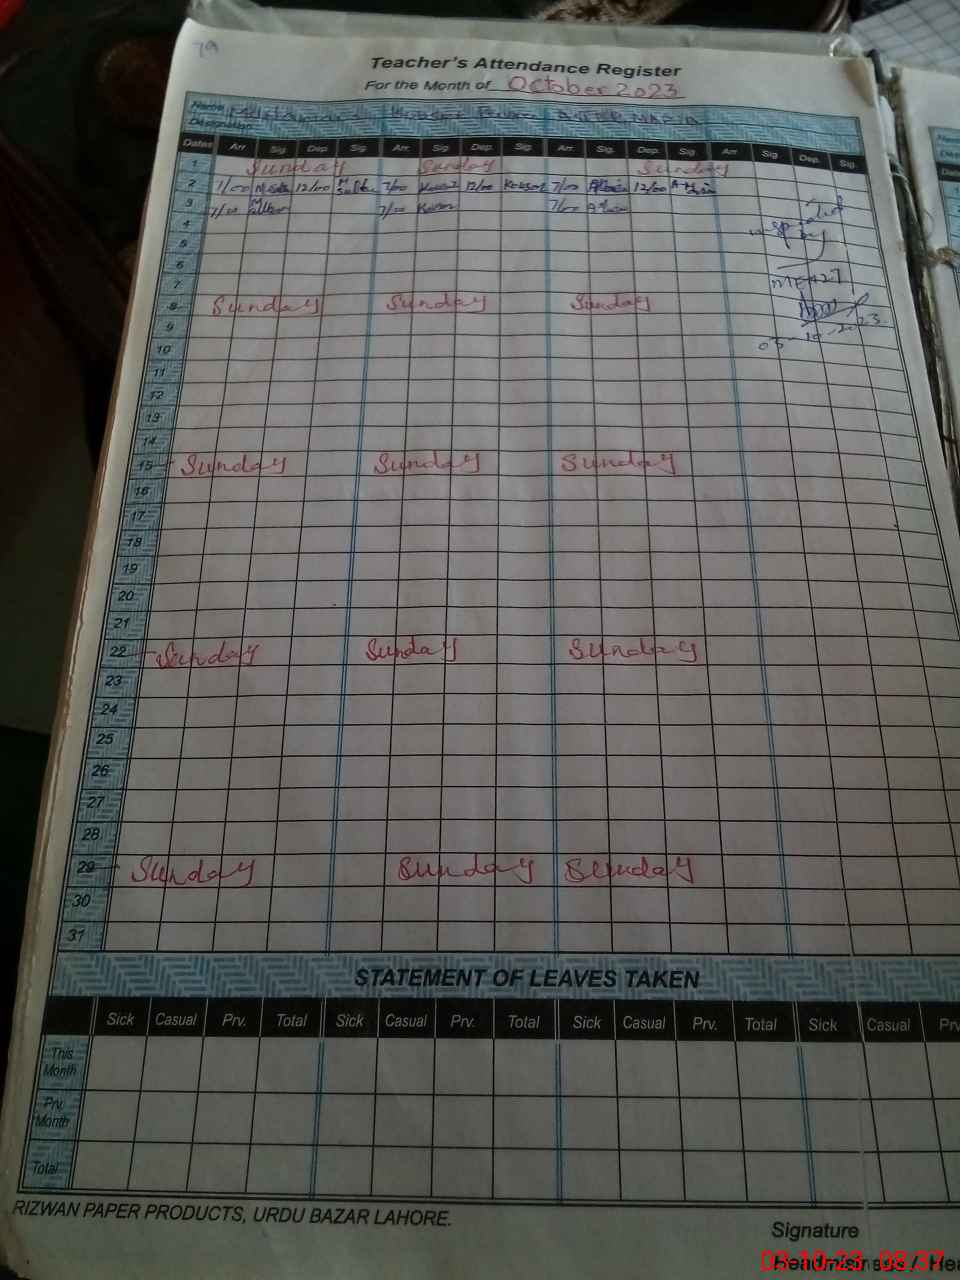 79
Teacher's Attendance Register
For the Month of October 2023
Name
Designation
Dates Arr. Sig. Dep. Sig. Arr. Sig. Dep. Sig. Arr. Sig. Dep. Sig. Arr. Sig. Dep. Sig.
1 Sunday Sunday Sunday
2 7/00 12/00 7/00 Kousar 12/00 Kousar 7/00 12/00
3 7/00 7/00 Kousar 7/00
4
5
6
7
8 Sunday Sunday Sunday
9
10
11
12
13
14
15 Sunday Sunday Sunday
16
17
18
19
20
21
22 Sunday Sunday Sunday
23
24
25
26
27
28
29 Sunday Sunday Sunday
30
31
by
03-10-2023
STATEMENT OF LEAVES TAKEN
Sick Casual Prv. Total Sick Casual Prv. Total Sick Casual Prv. Total Sick Casual Prv
This Month
Prv. Month
Total
RIZWAN PAPER PRODUCTS, URDU BAZAR LAHORE.
Signature
Headmistress / He
03-10-23 08:37